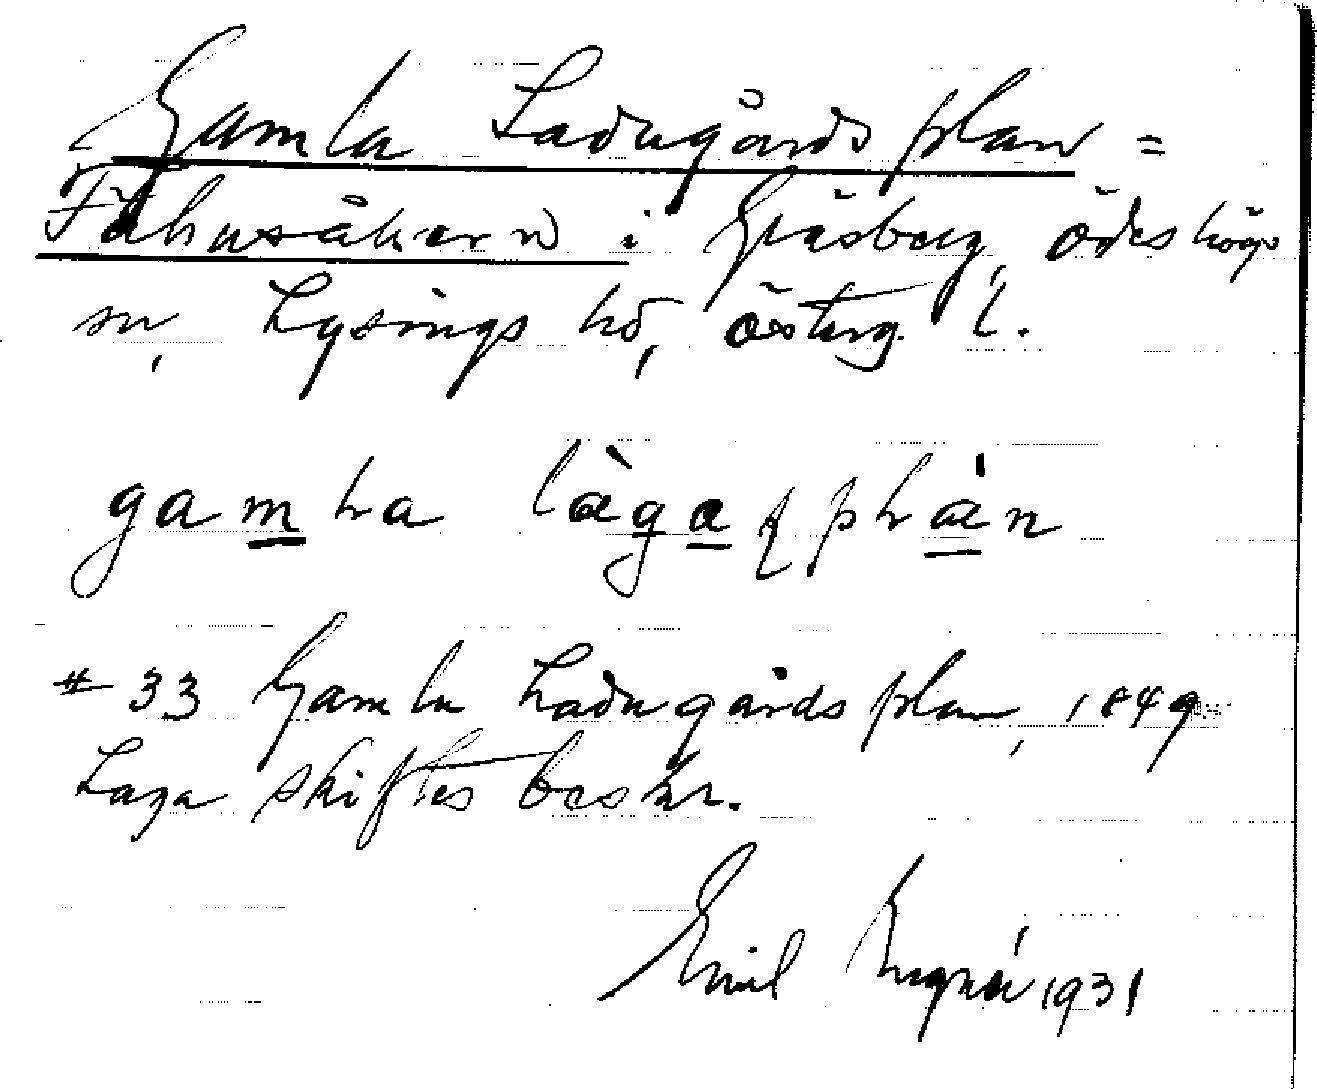 Gamla Ladugårdsplan =
Fähusåkern i Gräsberg, Ödeshögs
sn, Lysings hd, Österg. l.
gamla
# 33 Gamla Ladugårdsplan, 1849
Laga skiftes beskr.
Emil 1931